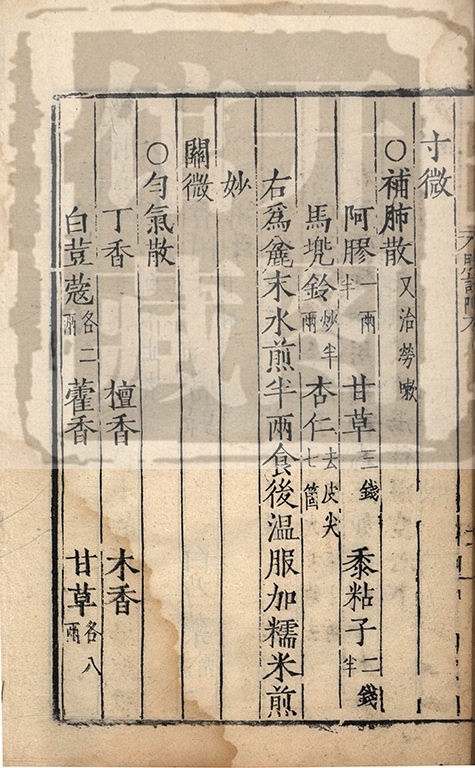 寸微
○補肺散又治勞嗽
阿膠一兩半 甘草三錢 黍粘子二錢半
馬兠鈴炒半兩 杏仁去皮尖七箇
右爲麄末水煎半兩食後温服加糯米煎
妙
關微
○匀氣散
丁香 檀香 木香
白荳蔻各二兩 藿香 甘草各八兩